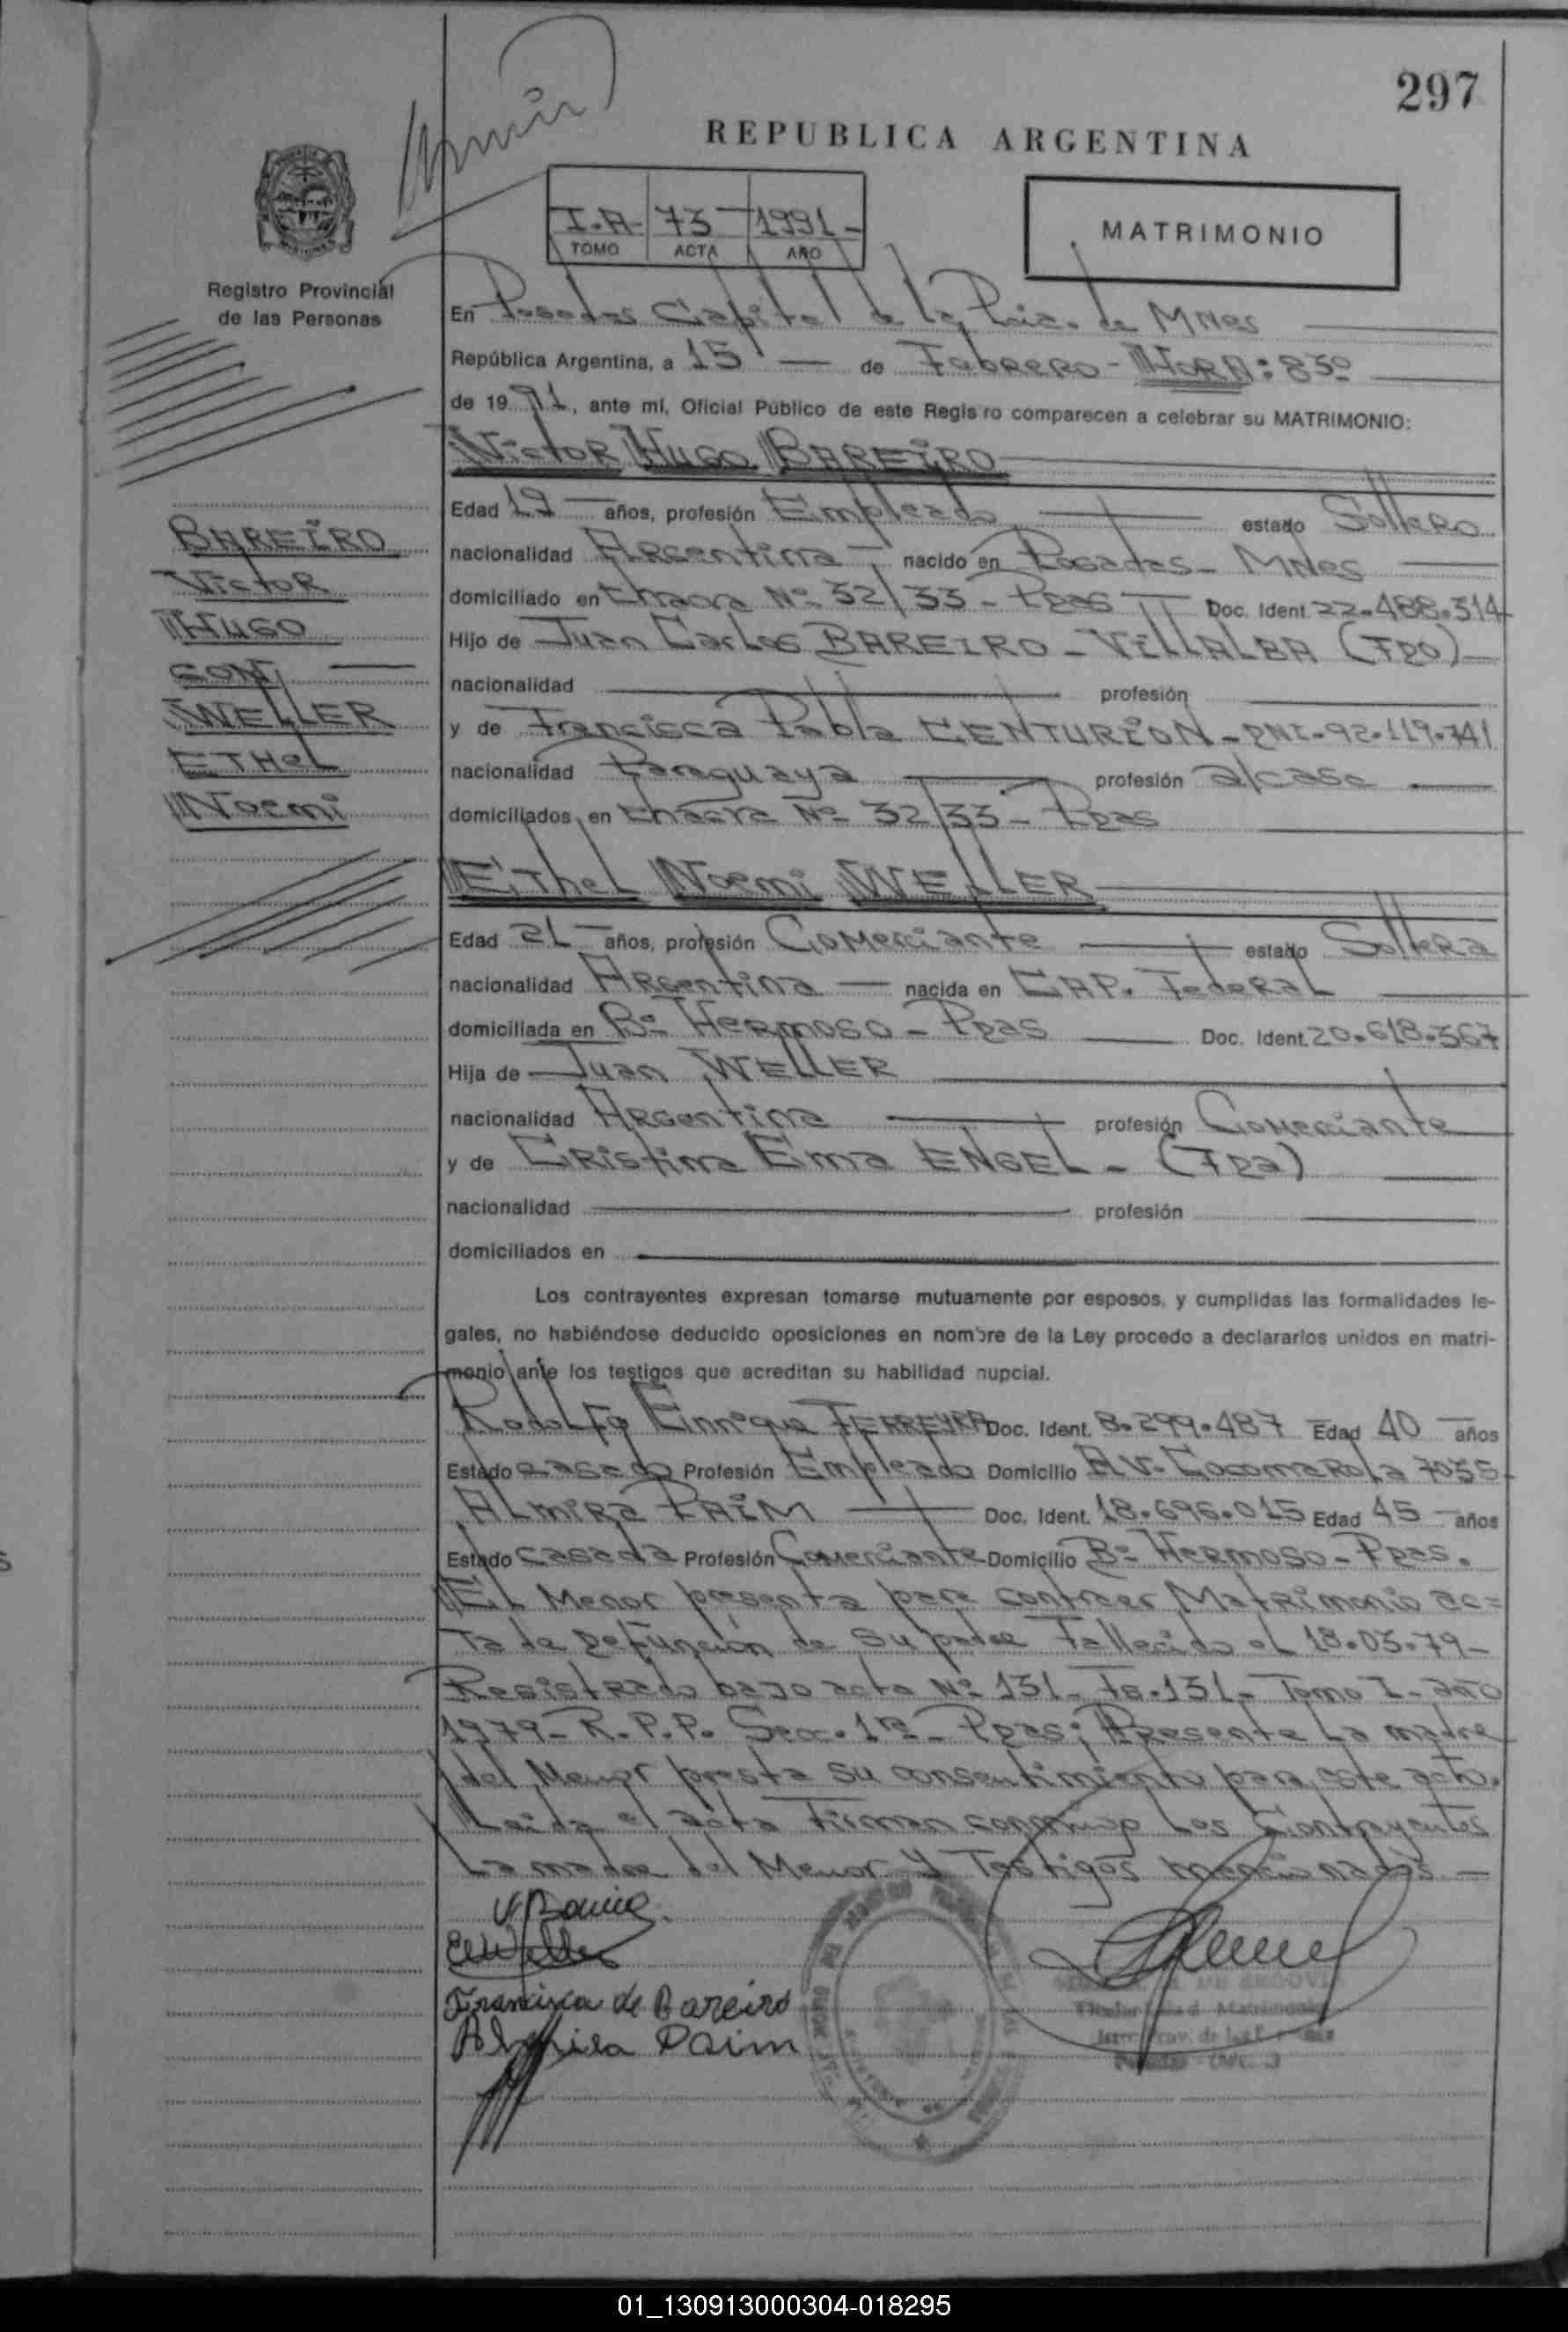 297
REPUBLICA ARGENTINA
I.A- 73 1991-
TOMO ACTA AÑO
MATRIMONIO
Registro Provincial
de las Personas
En Posadas Capital de la Pcia. de MNes
República Argentina, a 15 de Febrero - HORA: 830
de 1991, ante mí, Oficial Público de este Registro comparecen a celebrar su MATRIMONIO:
Victor Hugo BAREIRO
Edad 19 años, profesión Empleado estado Soltero
nacionalidad Argentina nacido en Posadas - MNes
domiciliado en Chacra Nº 32/33 - Pdas Doc. Ident. 22.488.314
Hijo de Juan Carlos BAREIRO - VILLALBA (Fdo)
nacionalidad profesión
y de Francisca Pabla CENTURION - DNI-92.119.741
nacionalidad Paraguaya profesión a/casa
domiciliados en Chacra Nº 32/33 - Pdas
BAREIRO
Victor
Hugo
CON
WELLER
ETHEL
Noemi
Ethel Noemi WELLER
Edad 21 años, profesión Comerciante estado Soltera
nacionalidad Argentina nacida en CAP. Federal
domiciliada en Bº Hermoso - Pdas Doc. Ident. 20.618.367
Hija de Juan WELLER
nacionalidad Argentina profesión Comerciante
y de Cristina Ema ENGEL - (Fda)
nacionalidad profesión
domiciliados en
Los contrayentes expresan tomarse mutuamente por esposos, y cumplidas las formalidades le-
gales, no habiéndose deducido oposiciones en nombre de la Ley procedo a declararlos unidos en matri-
monio ante los testigos que acreditan su habilidad nupcial.
Rodolfo Enrique FERREYRA Doc. Ident. 8.299.487 Edad 40 años
Estado casado Profesión Empleado Domicilio AV. Cocomarola 7035
ALMIRA PAIM Doc. Ident. 18.696.015 Edad 45 años
Estado casada Profesión Comerciante Domicilio Bº Hermoso - Pdas.
El Menor presenta para contraer Matrimonio ac=
ta de Defunción de su padre Fallecido el 18.03.79-
Registrado bajo acta Nº 131- Fº.131- Tomo I- año
1979- R.P.P. Secc. 1ª- Pdas; Presente La madre
del Menor presta su consentimiento para este acto.
Leida el acta Firman conmigo Los Contrayentes
La madre del Menor y Testigos mencionados -
Francisca de Bareiro
Almira Paim
01_130913000304-018295